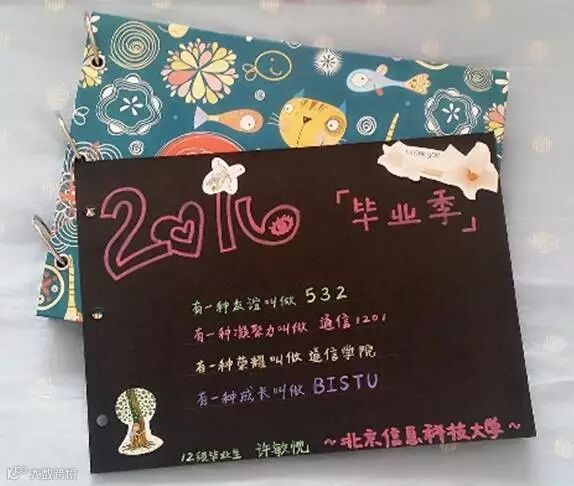 2016
「毕业季」
有一种友谊叫做 532
有一种凝聚力叫做 通信1201
有一种荣耀叫做 通信学院
有一种成长叫做 BISTU
12级毕业生 许敏悦
~北京信息科技大学~
大数跨境